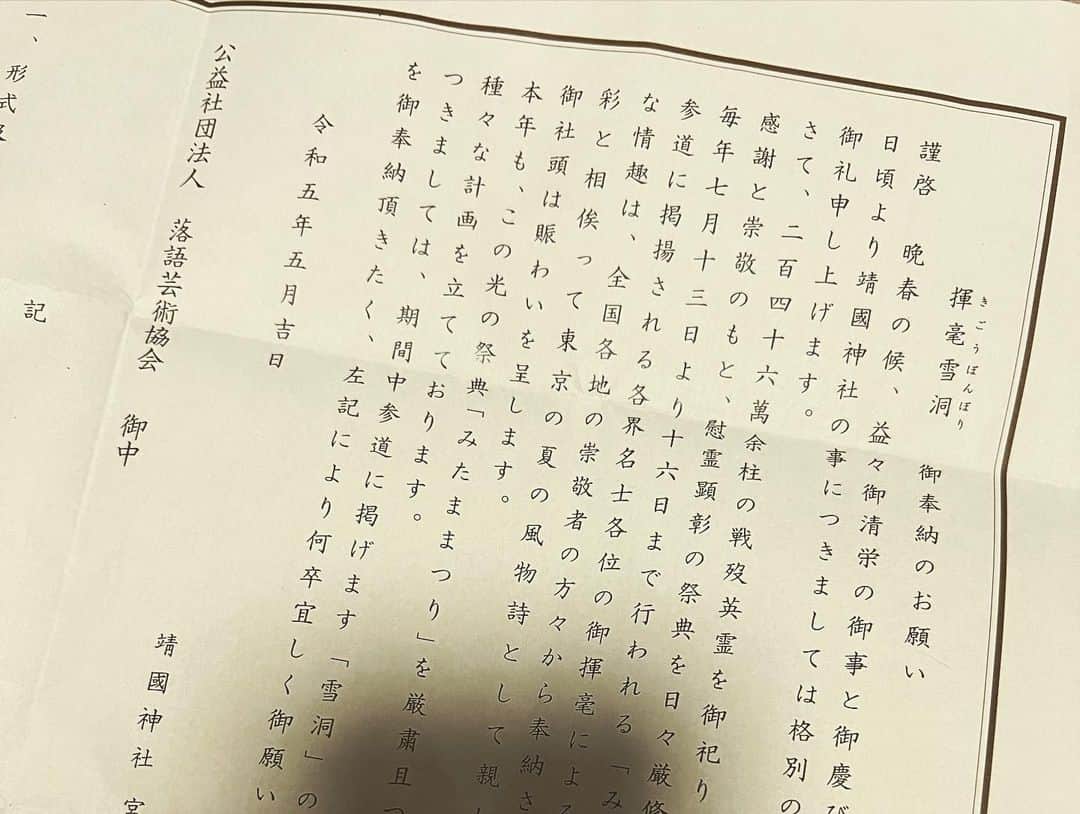 きごうぼんぼり
揮毫雪洞 御奉納のお願い
謹啓 晩春の候、益々御清栄の御事と御慶び
日頃より靖國神社の事につきましては格別の
御礼申し上げます。
さて、二百四十六萬余柱の戦歿英霊を御祀り
感謝と崇敬のもと、慰霊顕彰の祭典を日々厳修
毎年七月十三日より十六日まで行われる「み
参道に掲揚される各界名士各位の御揮毫による
な情趣は、全国各地の崇敬者の方々から奉納さ
彩と相俟って東京の夏の風物詩として親し
御社頭は賑わいを呈します。
本年も、この光の祭典「みたままつり」を厳粛且つ
種々な計画を立てております。
つきましては、期間中参道に掲げます「雪洞」の
を御奉納頂きたく、左記により何卒宜しく御願い
令和五年五月吉日
靖國神社 宮
公益社団法人 落語芸術協会 御中
記
一、形式